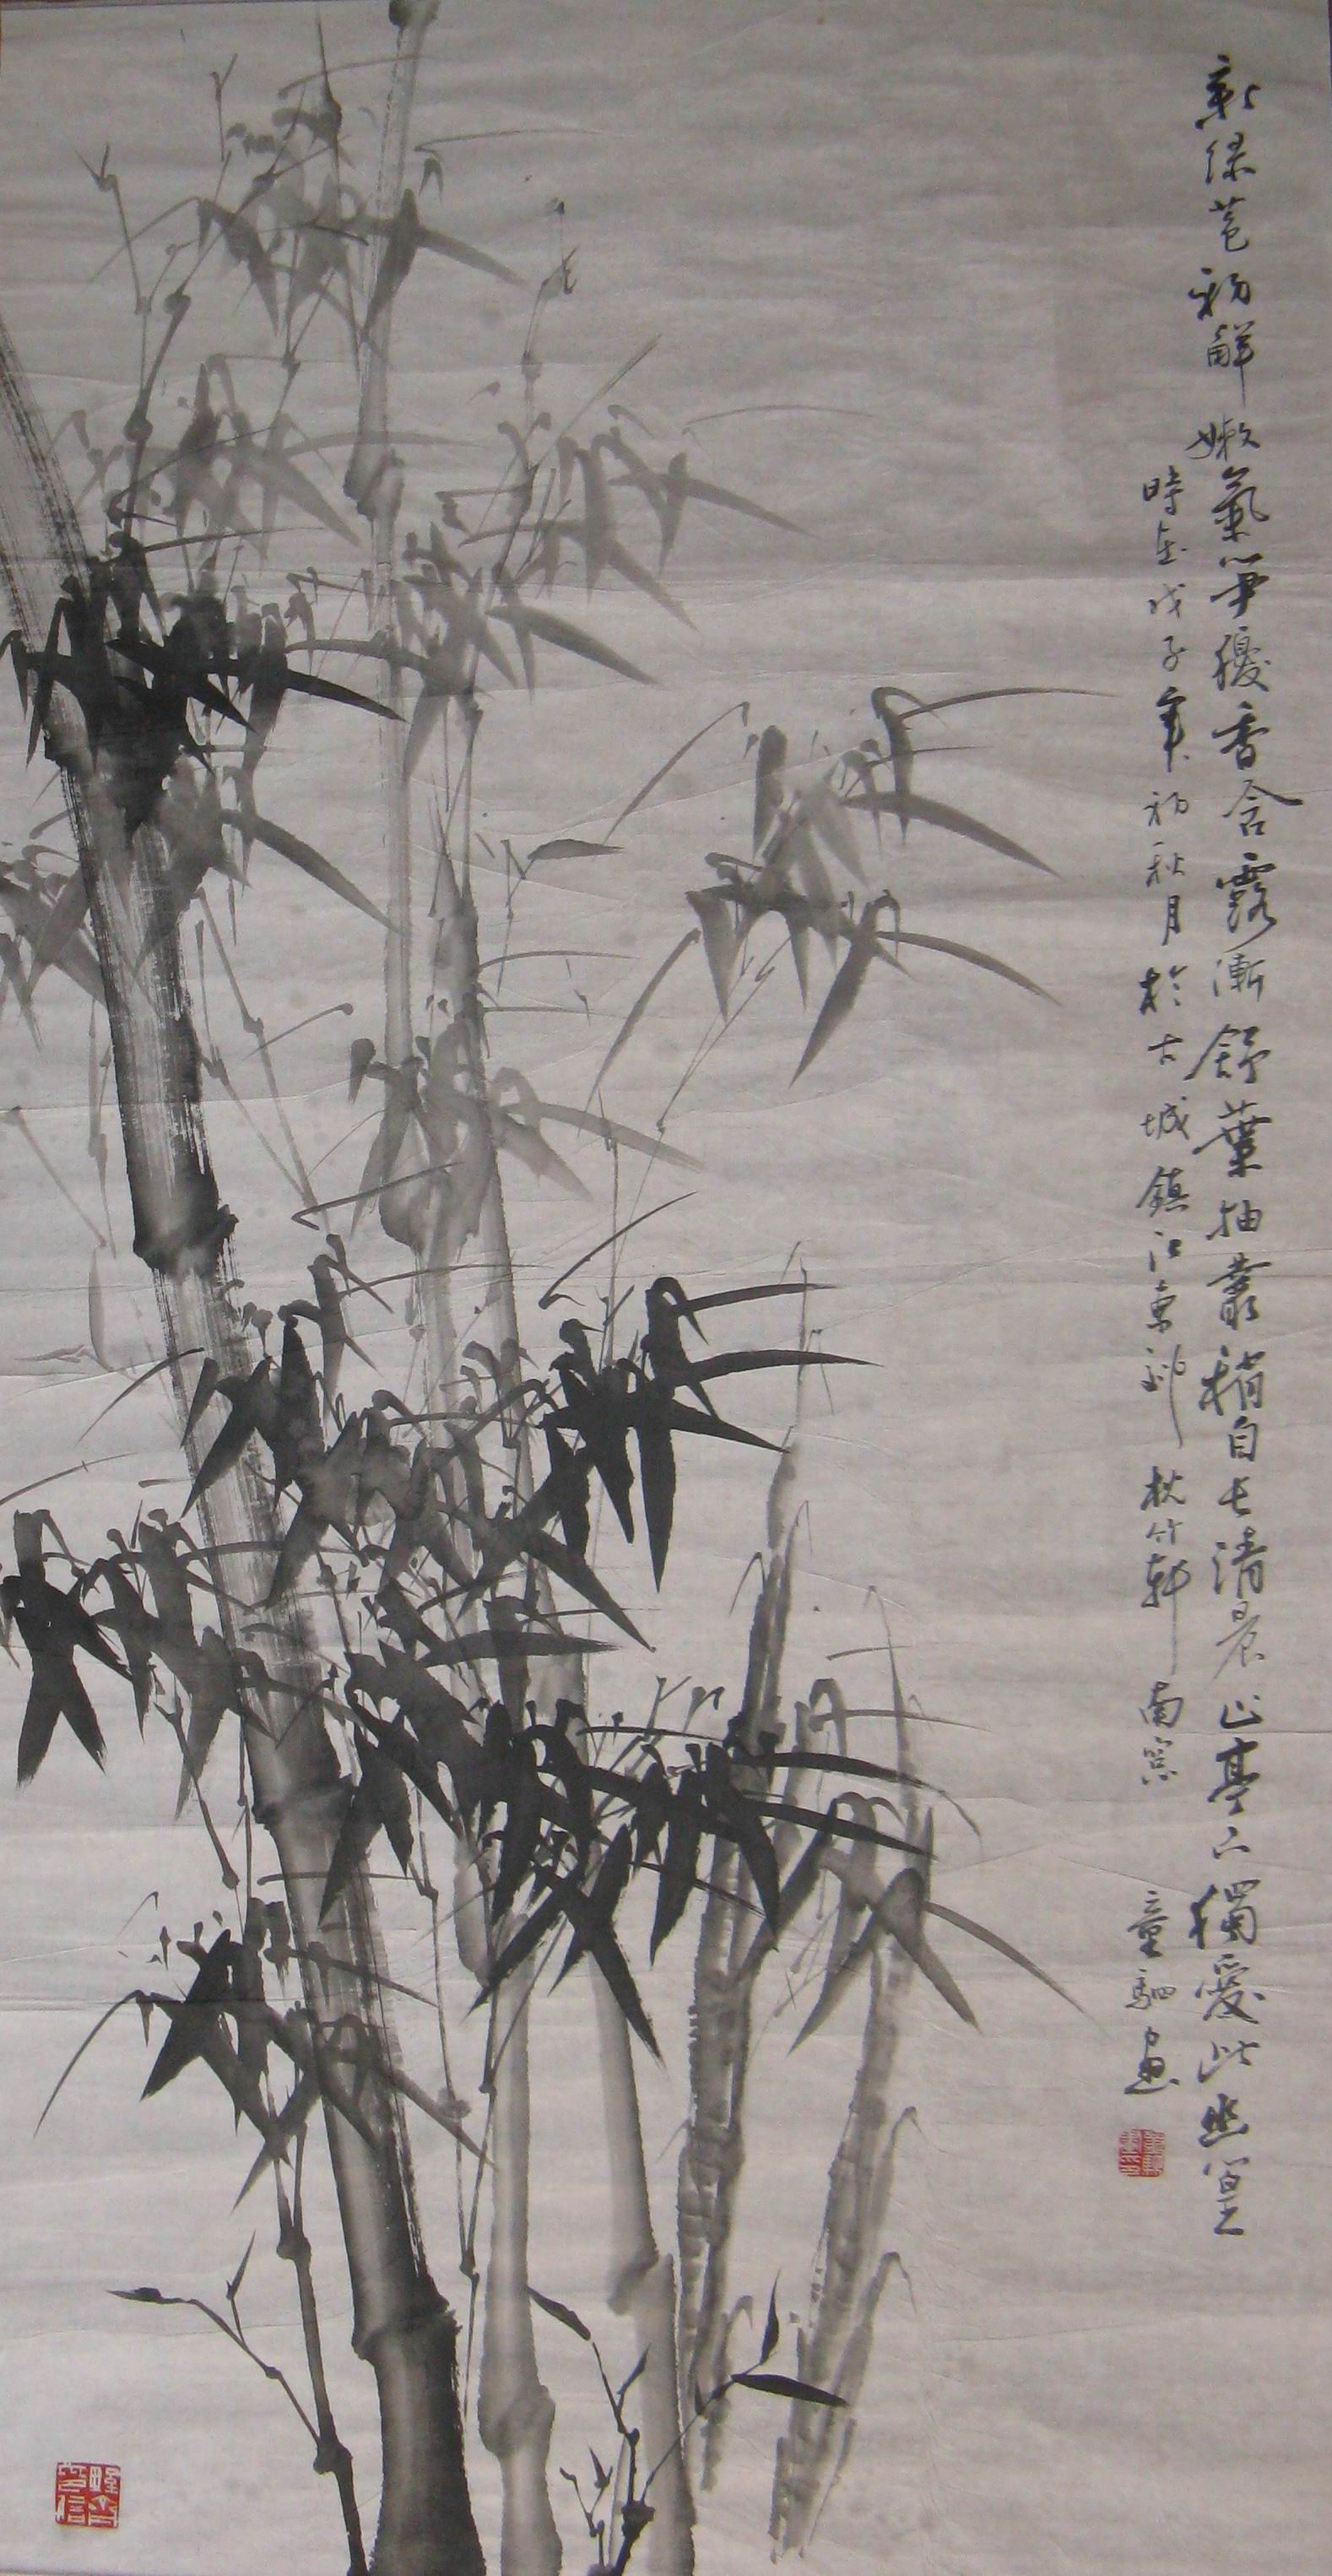 新绿苞初解嫩氣笋猶香含露漸舒葉抽叢稍自長清晨止亭下獨愛此幽篁
時在戊子年初秋月於古城鎮江東 枕竹軒 南窗 童駟画